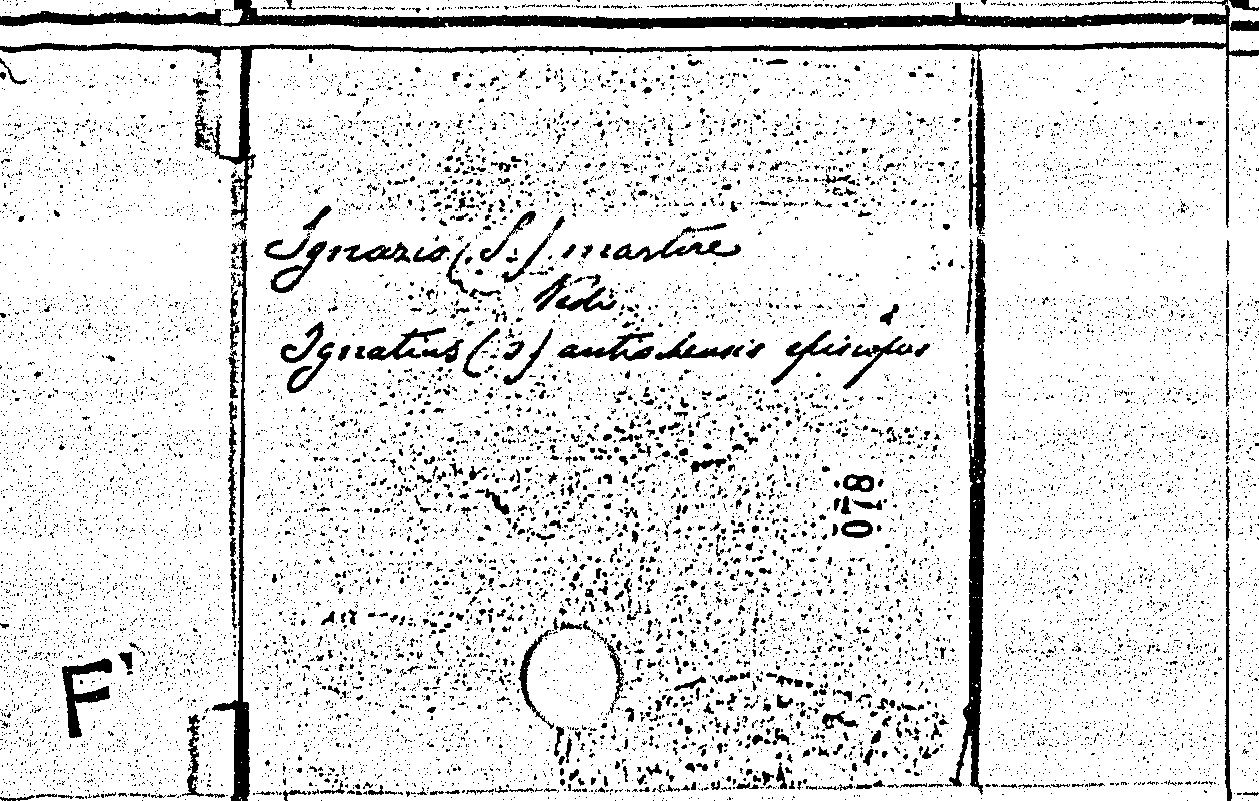 Ignazio (S.) martire
Vedi
Ignatius (s) antiochensis episcopus
078
F'